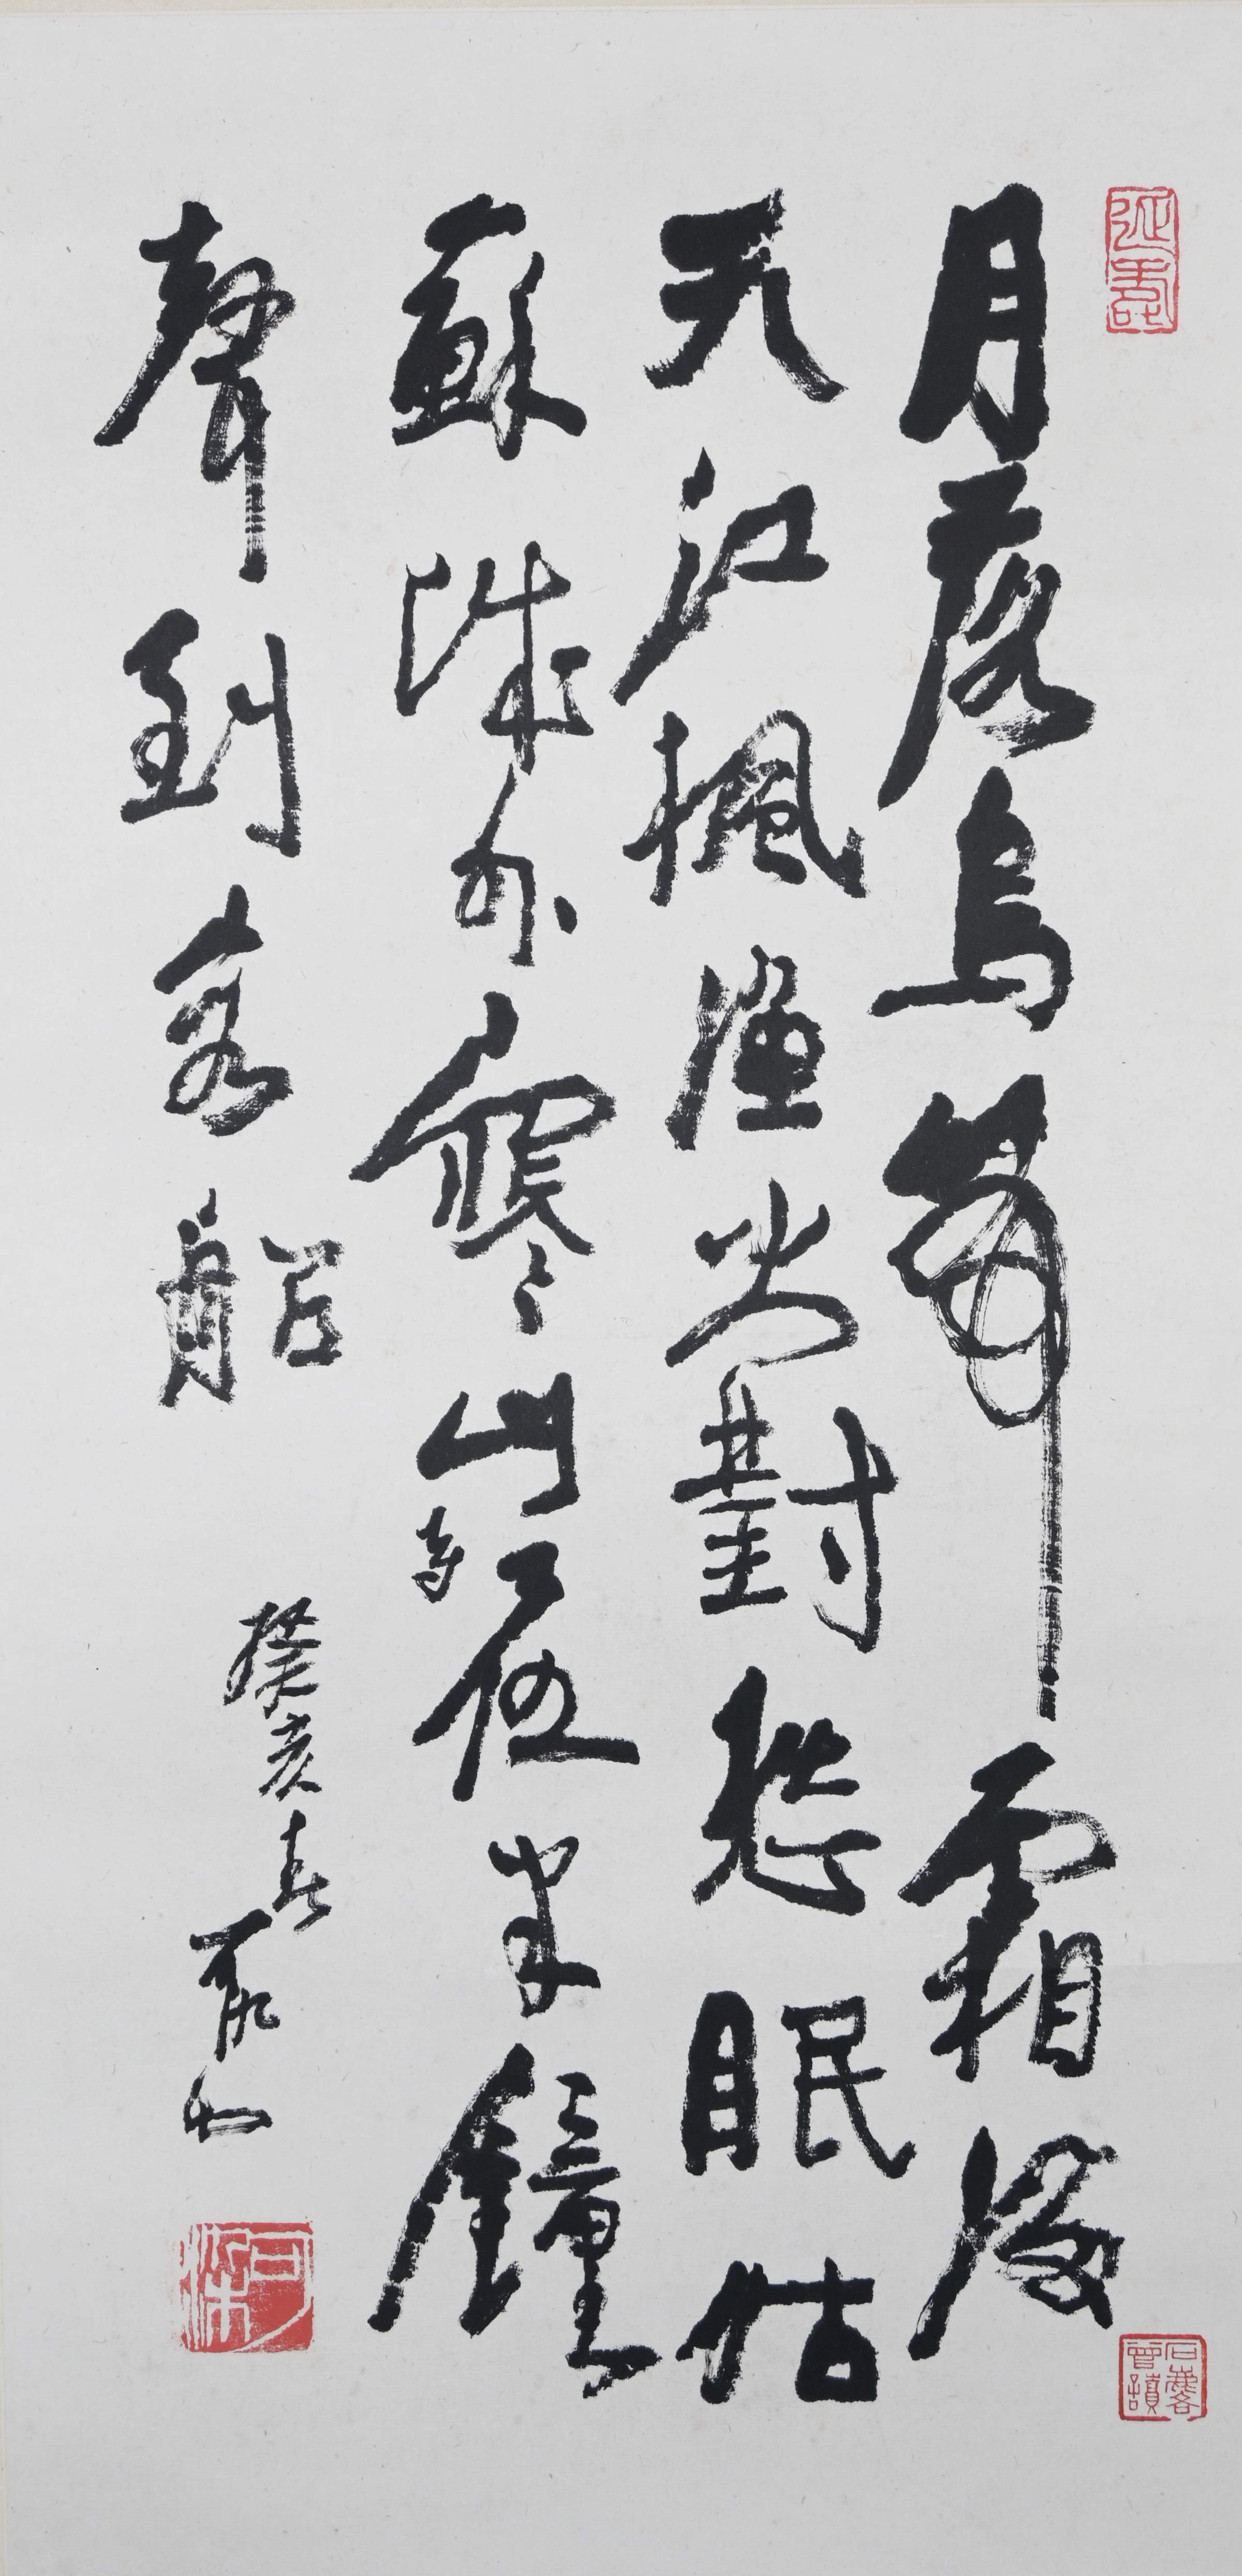 月落烏啼霜滿
天江楓漁火對愁眠姑
蘇城外寒山寺夜半鐘
聲到客船
癸亥春可染
可染